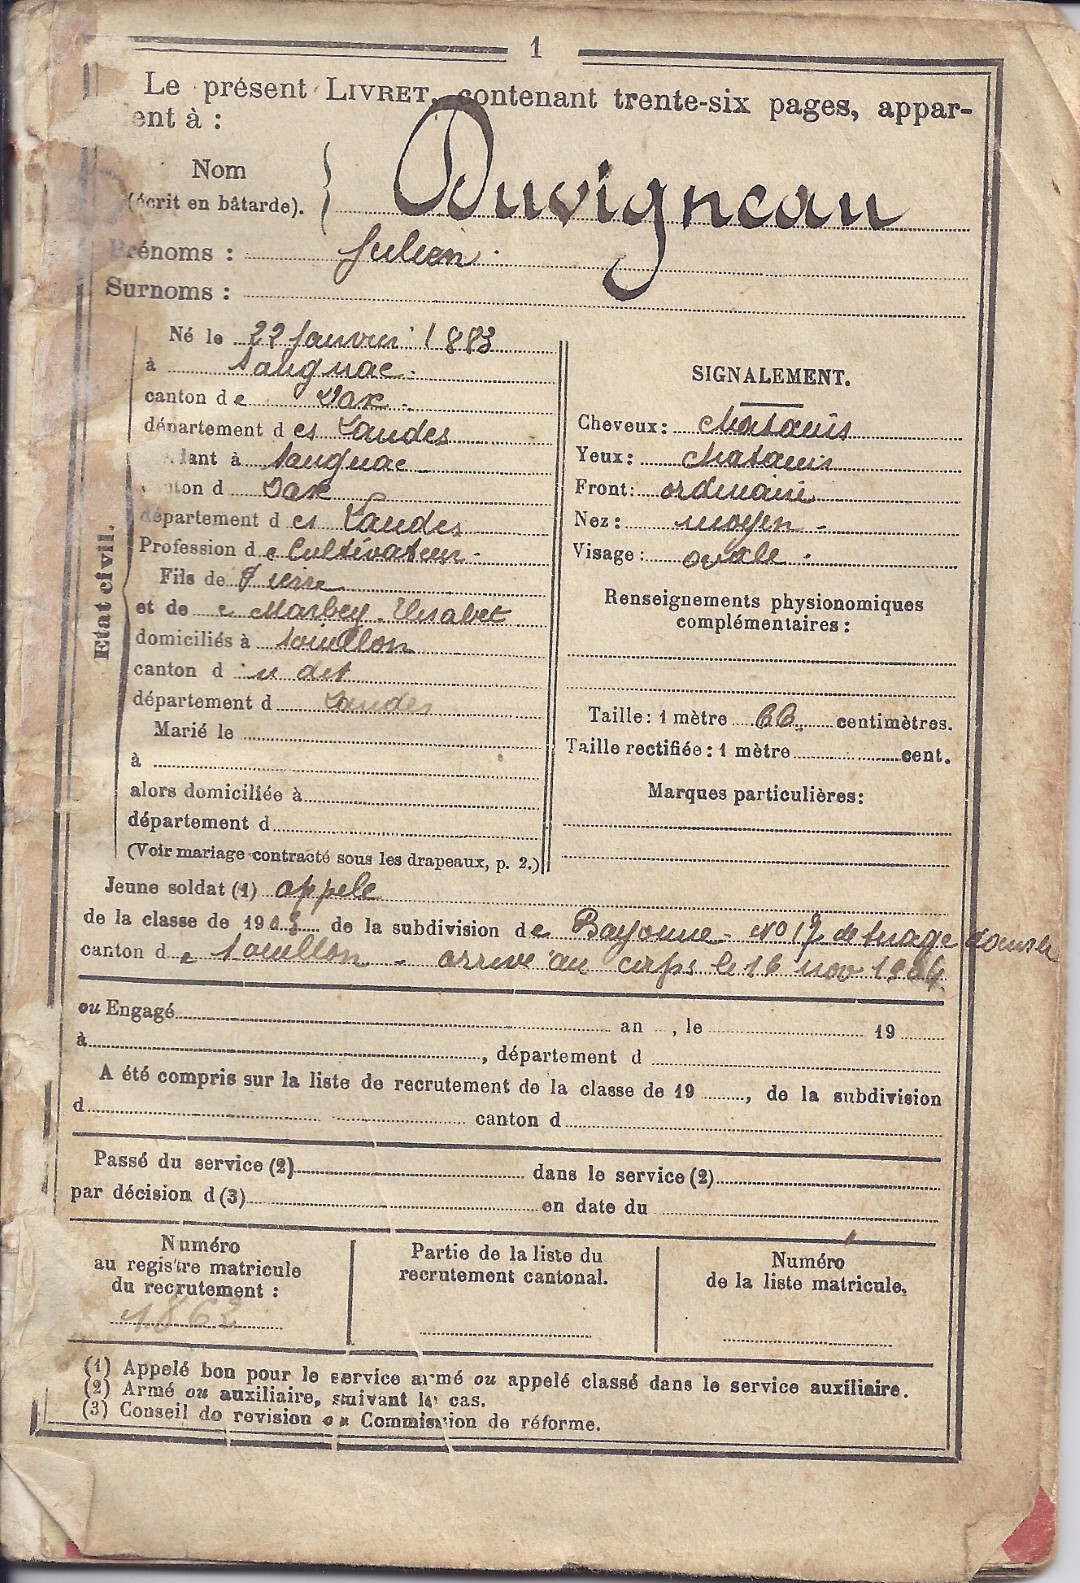 1
Le présent LIVRET, contenant trente-six pages, appar-
ent à :
Nom
(écrit en bâtarde).
Duvigneau
Prénoms : Julien
Surnoms :
Etat civil.
Né le 22 Janvier 1883
à Saugnac
canton de Dax
département des Landes
dant à Saugnac
ton d Dax
département des Landes
Profession de Cultivateur
Fils de Pierre
et de Marbey Elisabet
domiciliés à Pouillon
canton d u dit
département d Landes
Marié le
à
alors domiciliée à
département d
(Voir mariage contracté sous les drapeaux, p. 2.)
SIGNALEMENT.
Cheveux : chatains
Yeux : chatains
Front : ordinaire
Nez : moyen
Visage : ovale
Renseignements physionomiques
complémentaires :
Taille : 1 mètre 66 centimètres.
Taille rectifiée : 1 mètre cent.
Marques particulières :
Jeune soldat (1) appelé
de la classe de 1903 de la subdivision de Bayonne - No 17 de tirage dans le
canton de Pouillon - arrivé au corps le 16 nov 1904
ou Engagé an , le 19
à , département d
A été compris sur la liste de recrutement de la classe de 19 , de la subdivision
d canton d
Passé du service (2) dans le service (2)
par décision d (3) en date du
Numéro
au registre matricule
du recrutement :
1862
Partie de la liste du
recrutement cantonal.
Numéro
de la liste matricule.
(1) Appelé bon pour le service armé ou appelé classé dans le service auxiliaire.
(2) Armé ou auxiliaire, suivant le cas.
(3) Conseil de revision ou Commission de réforme.